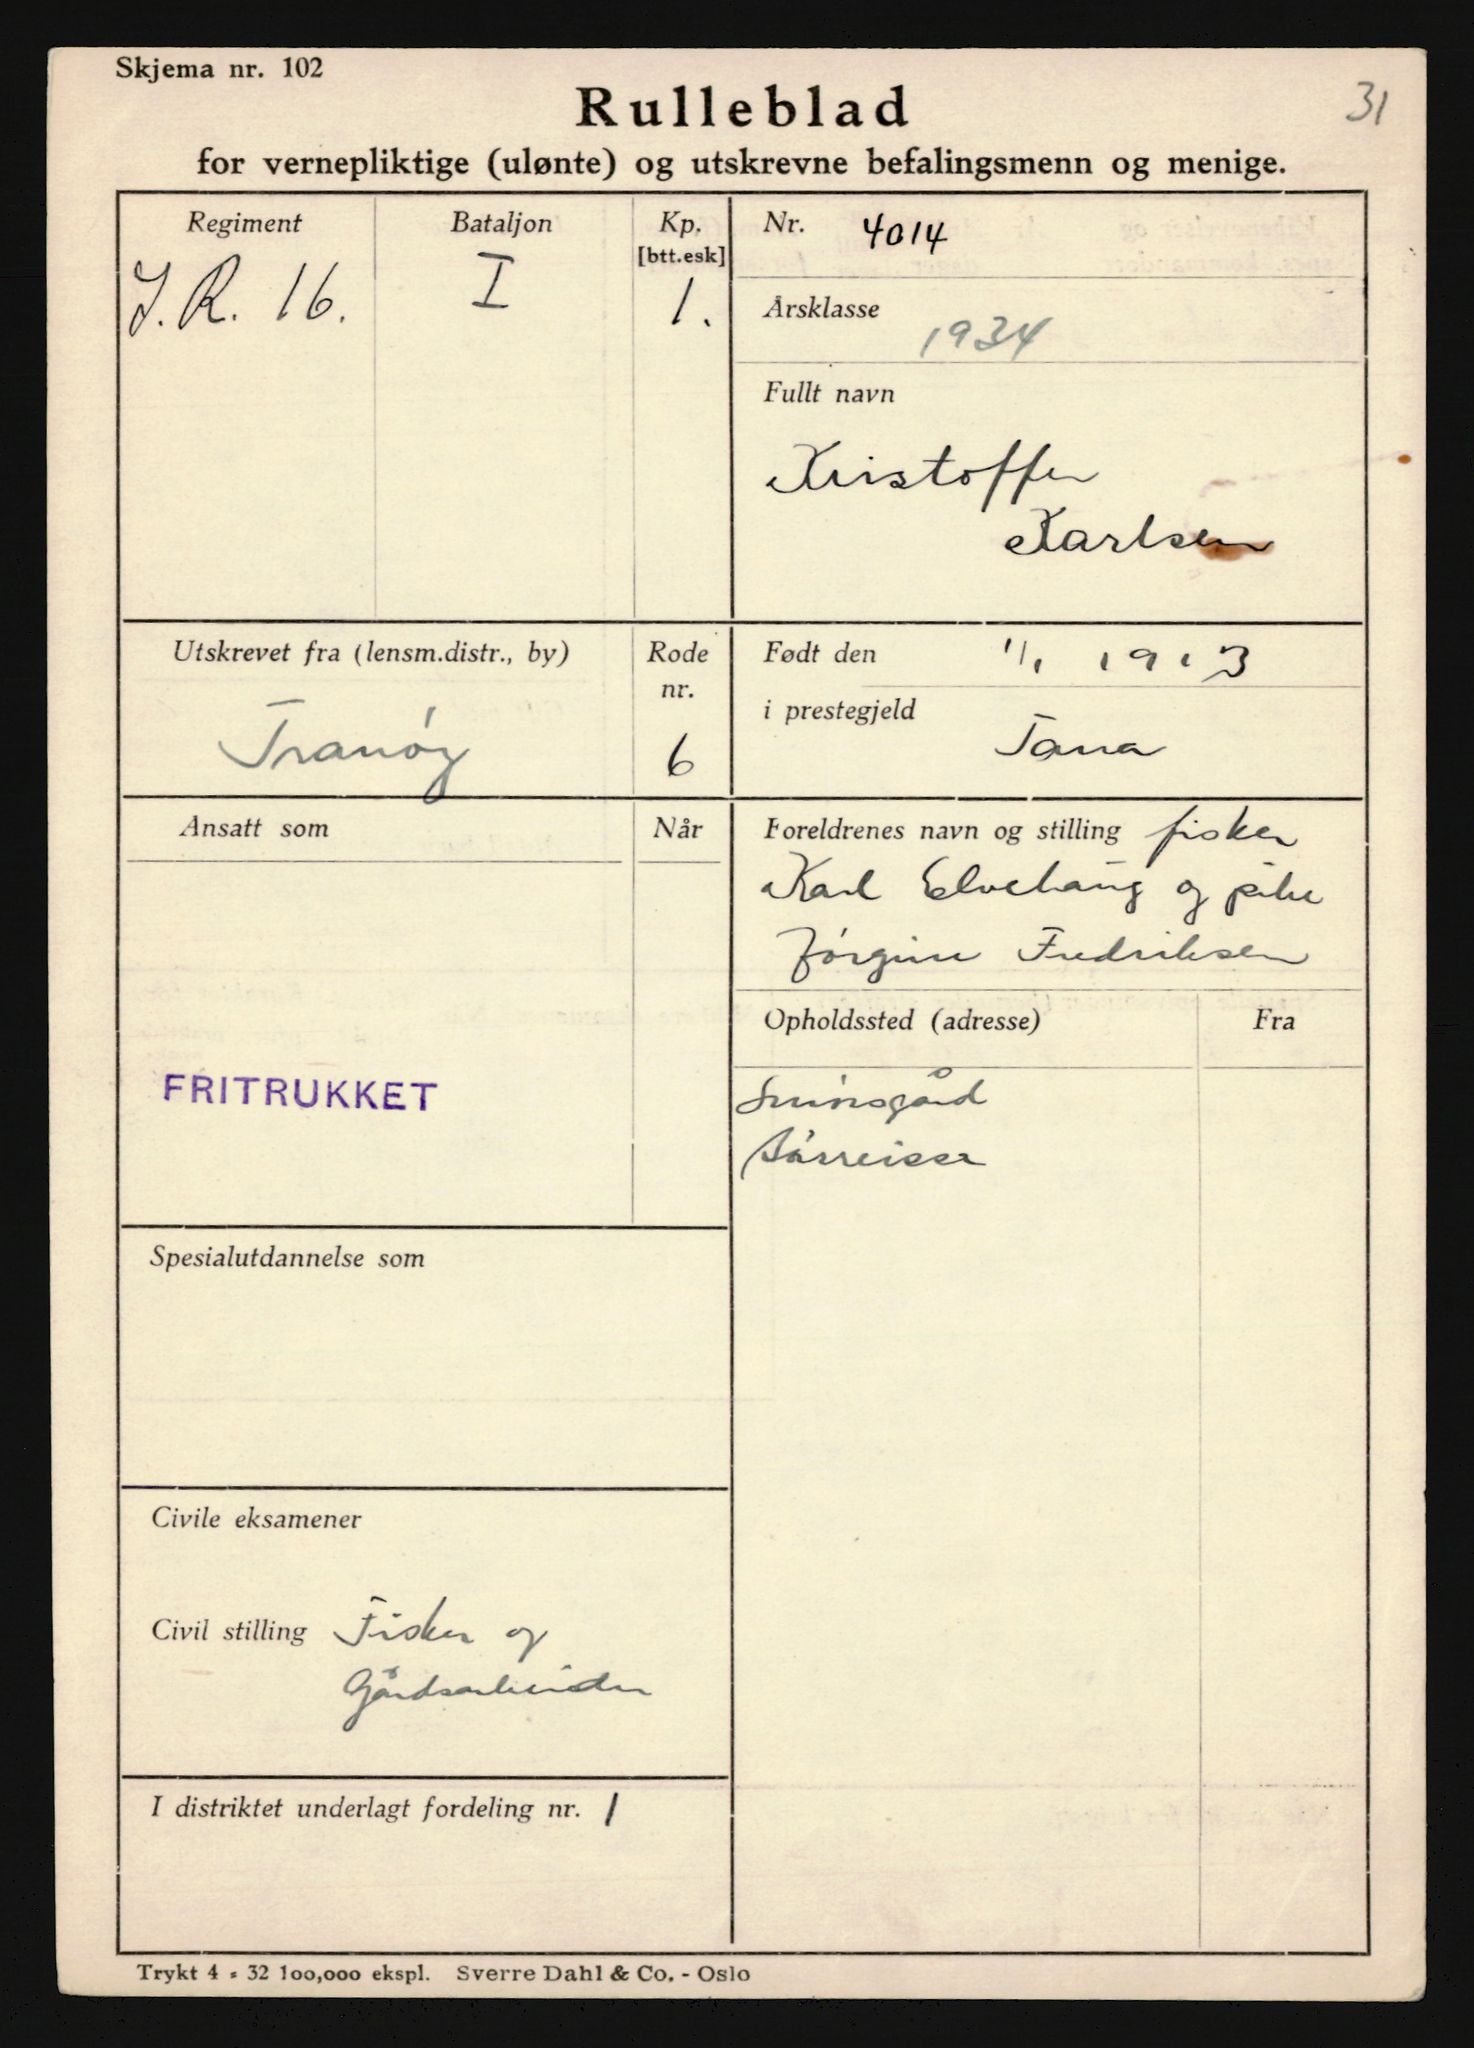 Skjema nr. 102
31
Rulleblad
for vernepliktige (ulønte) og utskrevne befalingsmenn og menige.
Regiment
Bataljon
Kp.
[btt.esk]
J. R. 16.
I
1.
Nr. 4014
Årsklasse
1934
Fullt navn
Kristoffer
Karlsen
Utskrevet fra (lensm.distr., by)
Rode
nr.
Tranöy
6
Født den 1/1 1913
i prestegjeld
Tana
Ansatt som
Når
FRITRUKKET
Foreldrenes navn og stilling fisker
Karl Elvehaug og pike
Jörgine Fredriksen
Opholdssted (adresse)
Fra
Spesialutdannelse som
Civile eksamener
Civil stilling Fisker og
Gårdsarbeider
I distriktet underlagt fordeling nr. 1
Trykt 4 - 32 100,000 ekspl. Sverre Dahl & Co. - Oslo